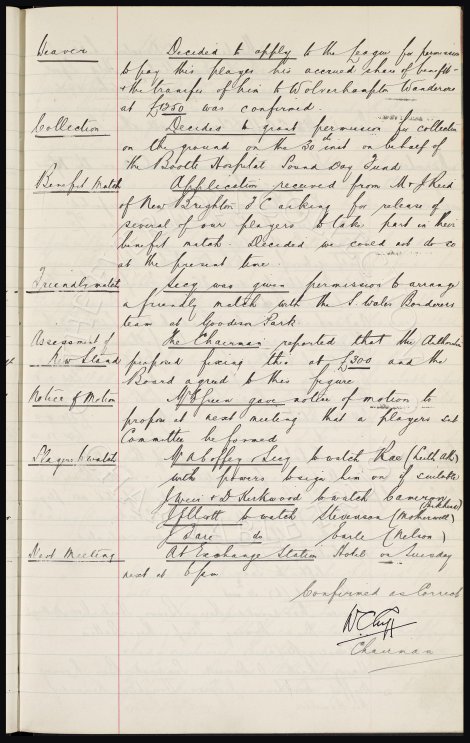 Weaver Decided to apply to the League for permission
to pay this player his accrued share of benefit
+ the transfer of him to Wolverhampton Wanderers
at £1250 was confirmed.
Collection Decided to grant permission for collection
on the ground on the 30th inst on behalf of
the Bootle Hospital Pound Day Fund
Benefit Match Application received from Mr J Reid
of New Brighton F C asking for release of
several of our players to take part in their
benefit match. Decided we could not do so
at the present time.
Friendly match Secy was given permission to arrange
a friendly match with the S. Wales Borderers
team at Goodison Park.
Assessment of The Chairman reported that the Authorities
New Stand proposed fixing this at £300 and the
Board agreed to this figure
Notice of Motion Mr Green gave notice of motion to
propose at next meeting that a players sub
Committee be formed
Players to watch Mr A Coffey + Secy to watch Rae (Leith Ath)
with powers to sign him on if suitable
+ D. Kirkwood to watch Cameron
to watch Stevenson (Motherwell)
J Sare do Earle (Nelson)
Next Meeting At Exchange Station Hotel on Tuesday
next at 6 pm
Confirmed as Correct
W C Cuff
Chairman